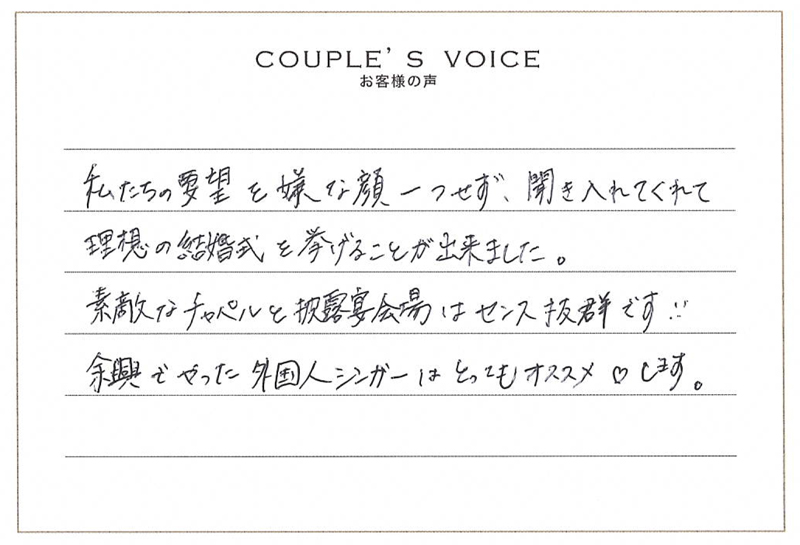 COUPLE'S VOICE
お客様の声
私たちの要望を嫌な顔一つせず、聞き入れてくれて
理想の結婚式を挙げることが出来ました。
素敵なチャペルと披露宴会場はセンス抜群です!!
余興でやった外国人シンガーはとってもオススメ♡します。